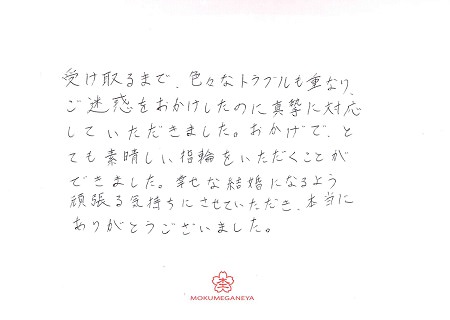 受け取るまで、色々なトラブルも重なり、
ご迷惑をおかけしたのに真摯に対応
していただきました。おかげで、と
ても素晴しい指輪をいただくことが
できました。幸せな結婚になるよう
頑張る気持ちにさせていただき、本当に
ありがとうございました。
MOKUMEGANEYA